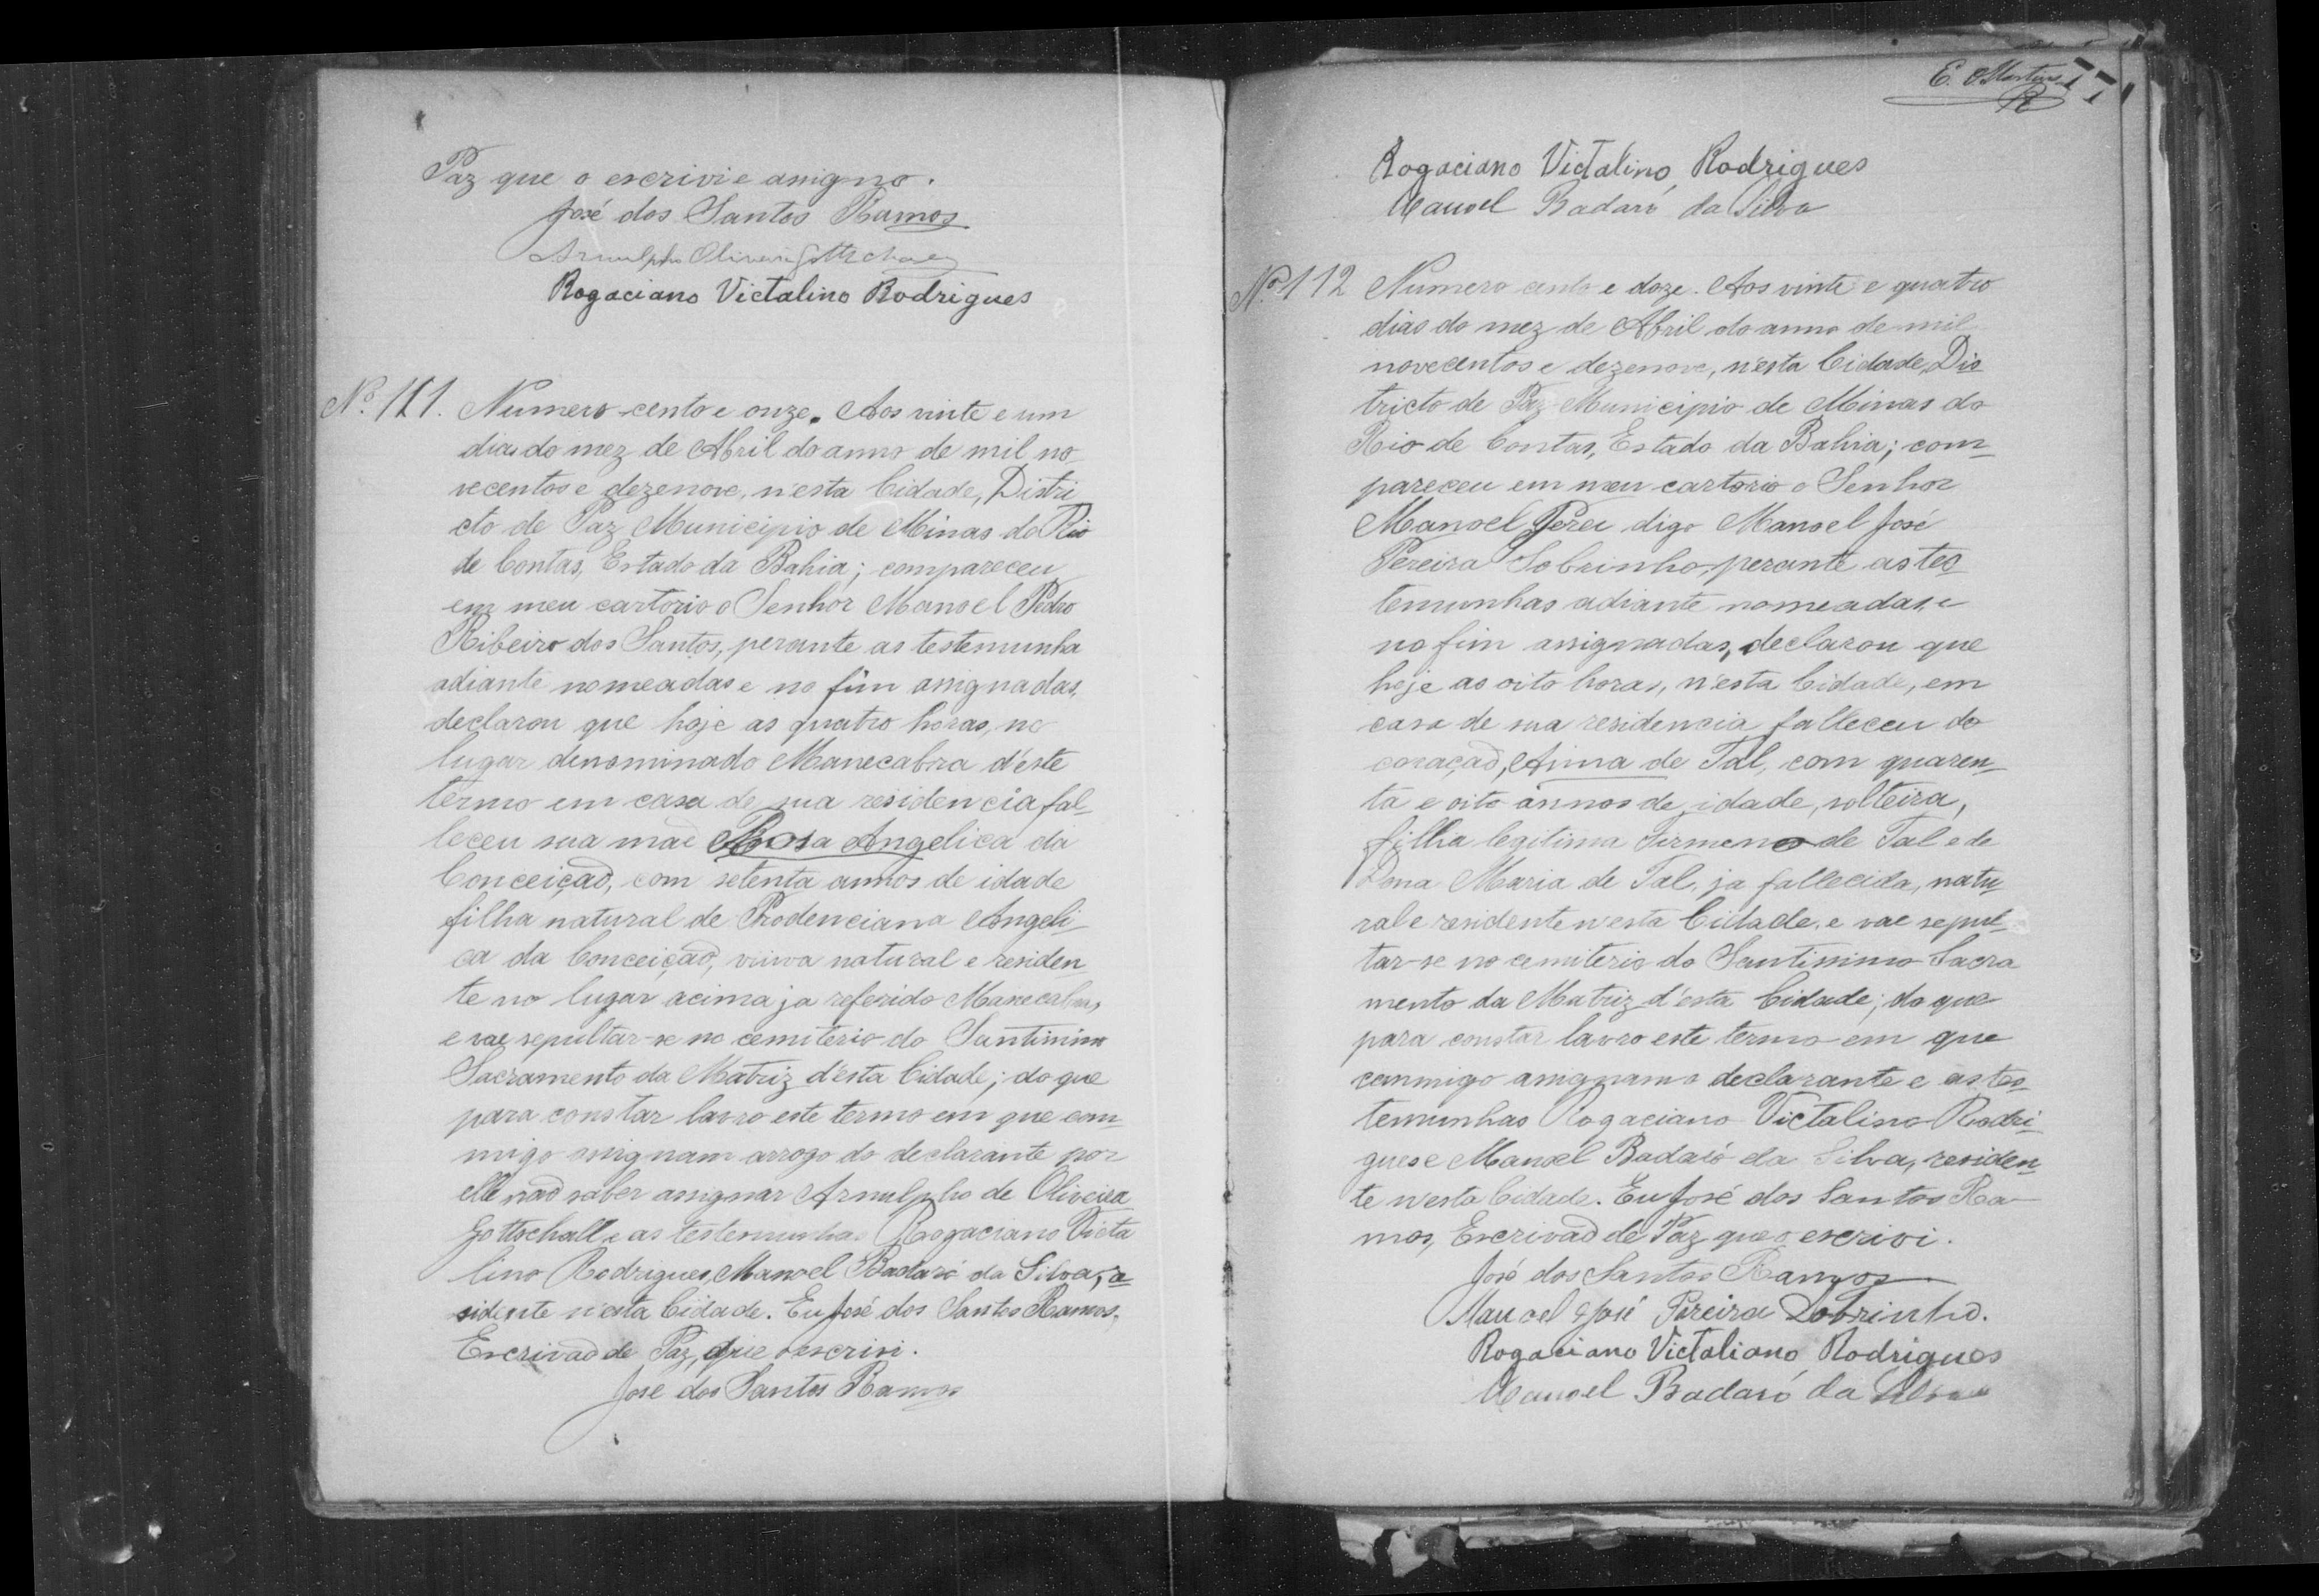 Paz que o escrivi e assigno.
José dos Santos Ramos
Arnulpho Oliveira Gottschall
Rogaciano Victalino Rodrigues
Nº 111. Numero cento e onze. Aos vinte e um
dias do mez de Abril do anno de mil no
vecentos e dezenove, n'esta Cidade, Distri
cto de Paz Municipio de Minas do Rio
de Contas, Estado da Bahia; compareceu
em meu cartorio o Senhor Manoel Pedro
Ribeiro dos Santos, perante as testemunha
adiante nomeadas e no fim assignadas,
declarou que hoje as quatro horas, no
lugar denominado Manecabra d'este
termo em casa de sua residencia fal-
leceu sua mae Rosa Angelica da
Conceiçaõ, com setenta annos de idade
filha natural de Prodenciana Angeli-
ca da Conceiçaõ, viuva natural e residen
te no lugar acima ja referido Manecabra,
e vae sepultar-se no cemiterio do Santissimo
Sacramento da Matriz d'esta Cidade; do que
para constar lavro este termo em que com-
migo assignam arrogo do declarante por
elle naõ saber assignar Arnulpho de Oliveira
Gottschall e as testemunhas Rogaciano Victa
lino Rodrigues, Manoel Badaró da Silva, re
sidente n'esta Cidade. Eu José dos Santos Ramos,
Escrivaõ de Paz, que o escrivi.
José dos Santos Ramos
E. Martins
Rogaciano Victalino Rodrigues
Manoel Badaró da Silva
Nº 112 Numero cento e doze. Aos vinte e quatro
dias do mez de Abril do anno de mil
novecentos e dezenove, n'esta Cidade, Dis
tricto de Paz Municipio de Minas do
Rio de Contas, Estado da Bahia; com-
pareceu em meu cartorio o Senhor
Manoel Perei digo Manoel José
Pereira Sobrinho, perante as tes
temunhas adiante nomeadas, e
no fim assignadas, declarou que
hoje as oito horas, n'esta Cidade, em
casa de sua residencia falleceu do
coraçaõ, Anna de Tal, com quaren-
ta e oito annos de idade, solteira,
filha legitima Firmeno de Tal e de
Dona Maria de Tal, ja fallecida, natu
ral e residente n'esta Cidade, e vae sepul-
tar-se no cemiterio do Santissimo Sacra
mento da Matriz d'esta Cidade; do que
para constar lavro este termo em que
conmigo assignam o declarante e as tes-
temunhas Rogaciano Victalino Rodri-
gues e Manoel Badaró da Silva, residen
te n'esta Cidade. Eu José dos Santos Ra-
mos, Escrivaõ de Paz que o escrivi.
José dos Santos Ramos
Manoel José Pereira Sobrinho.
Rogaciano Victaliano Rodrigues
Manoel Badaró da Silva